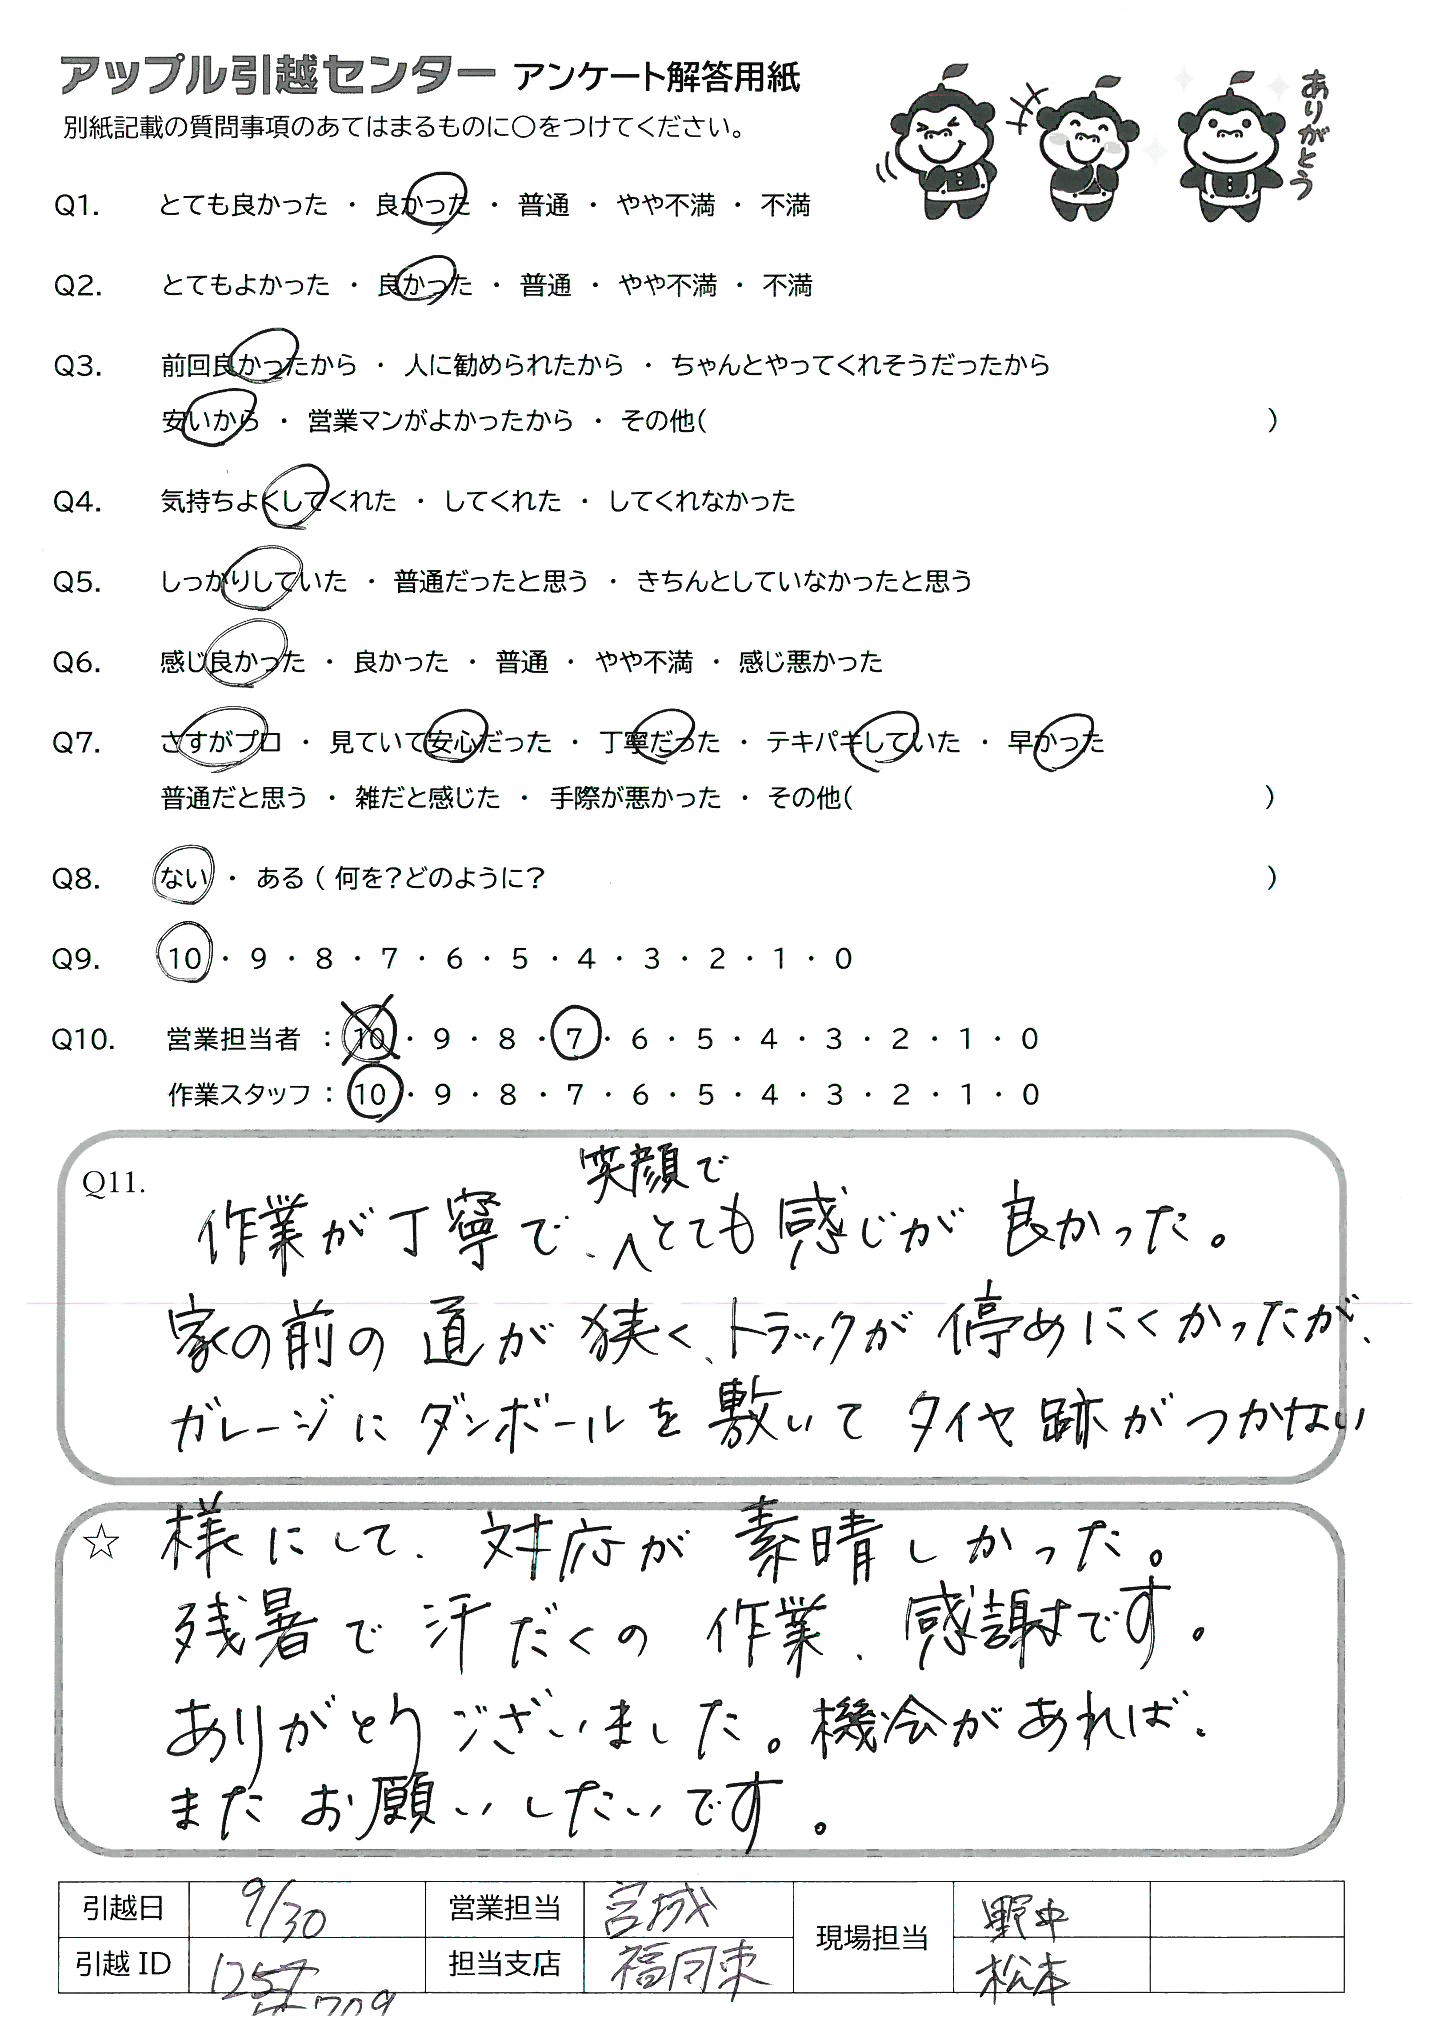 アップル引越センター アンケート解答用紙
別紙記載の質問事項のあてはまるものに○をつけてください。
ありがとう
Q1. とても良かった ・ 良かった ・ 普通 ・ やや不満 ・ 不満
Q2. とてもよかった ・ 良かった ・ 普通 ・ やや不満 ・ 不満
Q3. 前回良かったから ・ 人に勧められたから ・ ちゃんとやってくれそうだったから
安いから ・ 営業マンがよかったから ・ その他( )
Q4. 気持ちよくしてくれた ・ してくれた ・ してくれなかった
Q5. しっかりしていた ・ 普通だったと思う ・ きちんとしていなかったと思う
Q6. 感じ良かった ・ 良かった ・ 普通 ・ やや不満 ・ 感じ悪かった
Q7. さすがプロ ・ 見ていて安心だった ・ 丁寧だった ・ テキパキしていた ・ 早かった
普通だと思う ・ 雑だと感じた ・ 手際が悪かった ・ その他( )
Q8. ない ・ ある ( 何を?どのように? )
Q9. 10 ・ 9 ・ 8 ・ 7 ・ 6 ・ 5 ・ 4 ・ 3 ・ 2 ・ 1 ・ 0
Q10. 営業担当者 : 10 ・ 9 ・ 8 ・ 7 ・ 6 ・ 5 ・ 4 ・ 3 ・ 2 ・ 1 ・ 0
作業スタッフ : 10 ・ 9 ・ 8 ・ 7 ・ 6 ・ 5 ・ 4 ・ 3 ・ 2 ・ 1 ・ 0
Q11.
笑顔で
作業が丁寧で、とても感じが良かった。
家の前の道が狭く、トラックが停めにくかったが、
ガレージにダンボールを敷いてタイヤ跡がつかない
☆ 様にして、対応が素晴しかった。
残暑で汗だくの作業、感謝です。
ありがとうございました。機会があれば、
またお願いしたいです。
引越日 9/30 営業担当 宮城 現場担当 野中
引越ID 1257 担当支店 福岡東 松本